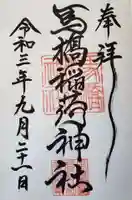 奉拝
馬橋稲荷神社
令和三年九月二十一日